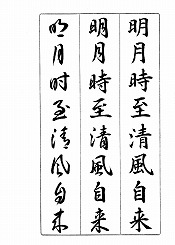 明月時至清風自来
明月時至清風自来
明月时至清风自来